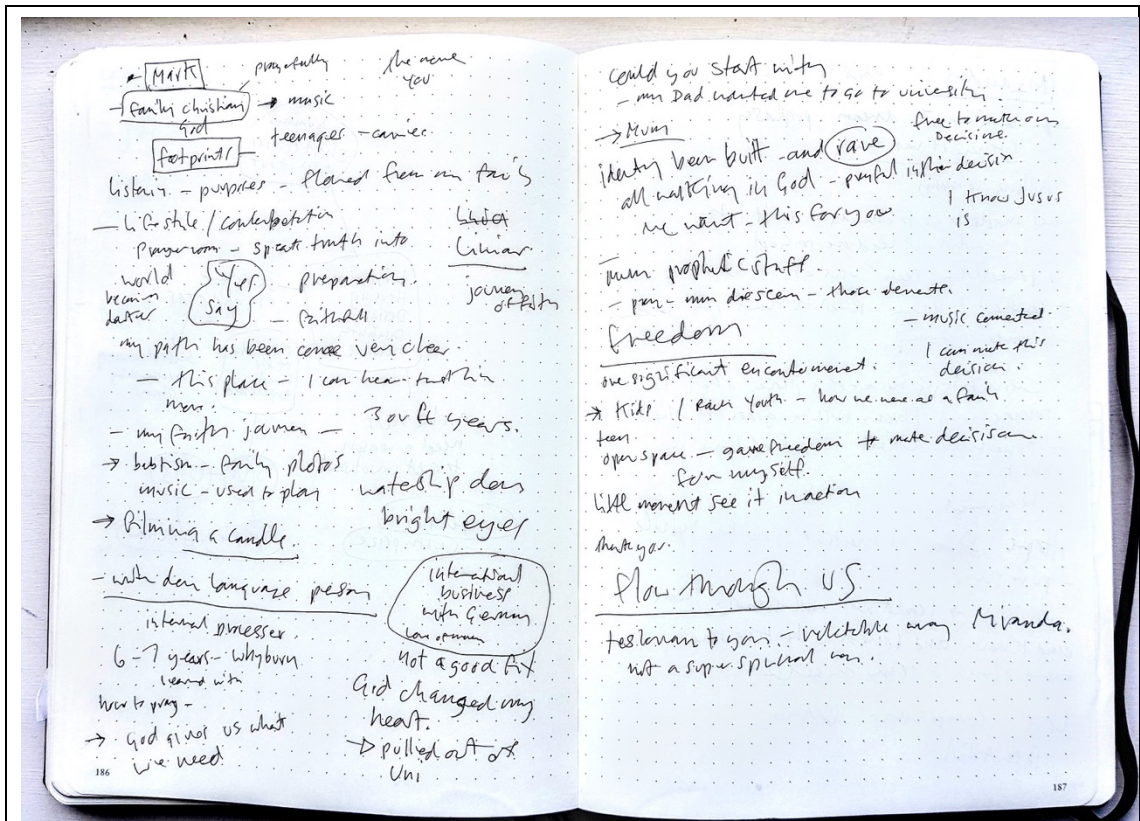 - Mark
prayerfully
the name
you
- family christian → music
God
teenager - carrier
footprints
listening - purposes - flowed from my faith
- Lifestyle / contemplation
Prayer room - speak truth into
world
darker
Yes
say
preparation.
- faithful.
journey
of faith
my path has been come very clear.
- this place - I can hear
more.
- my faith journey -
3 or ft years.
→ babtism - family photos
music - used to play
watership down
bright eyes
→ filming a candle.
- language person
internal processer.
international
business
with German
not a good fit
6-7 years -
learned with
how to pray -
God changed my
heart.
→ God gives us what
we need
→ pulled out of
Uni
186
could you start with
- my Dad wanted me to go to university.
→ Mum
free to make own
Decisions.
identity been built - and rave
all walking in God - prayful in the decision
we want - this for you
I know Jesus
is
- mum prophetic stuff.
- pray - mum
- music connected.
freedom
I can make this
decision.
one significant
→ Kids / Youth - how we were as a family
teen
open space - gave freedom to make decision
for myself.
little moment see it in action
thank you.
flow through us
to you - way Miranda.
not a super spiritual
187